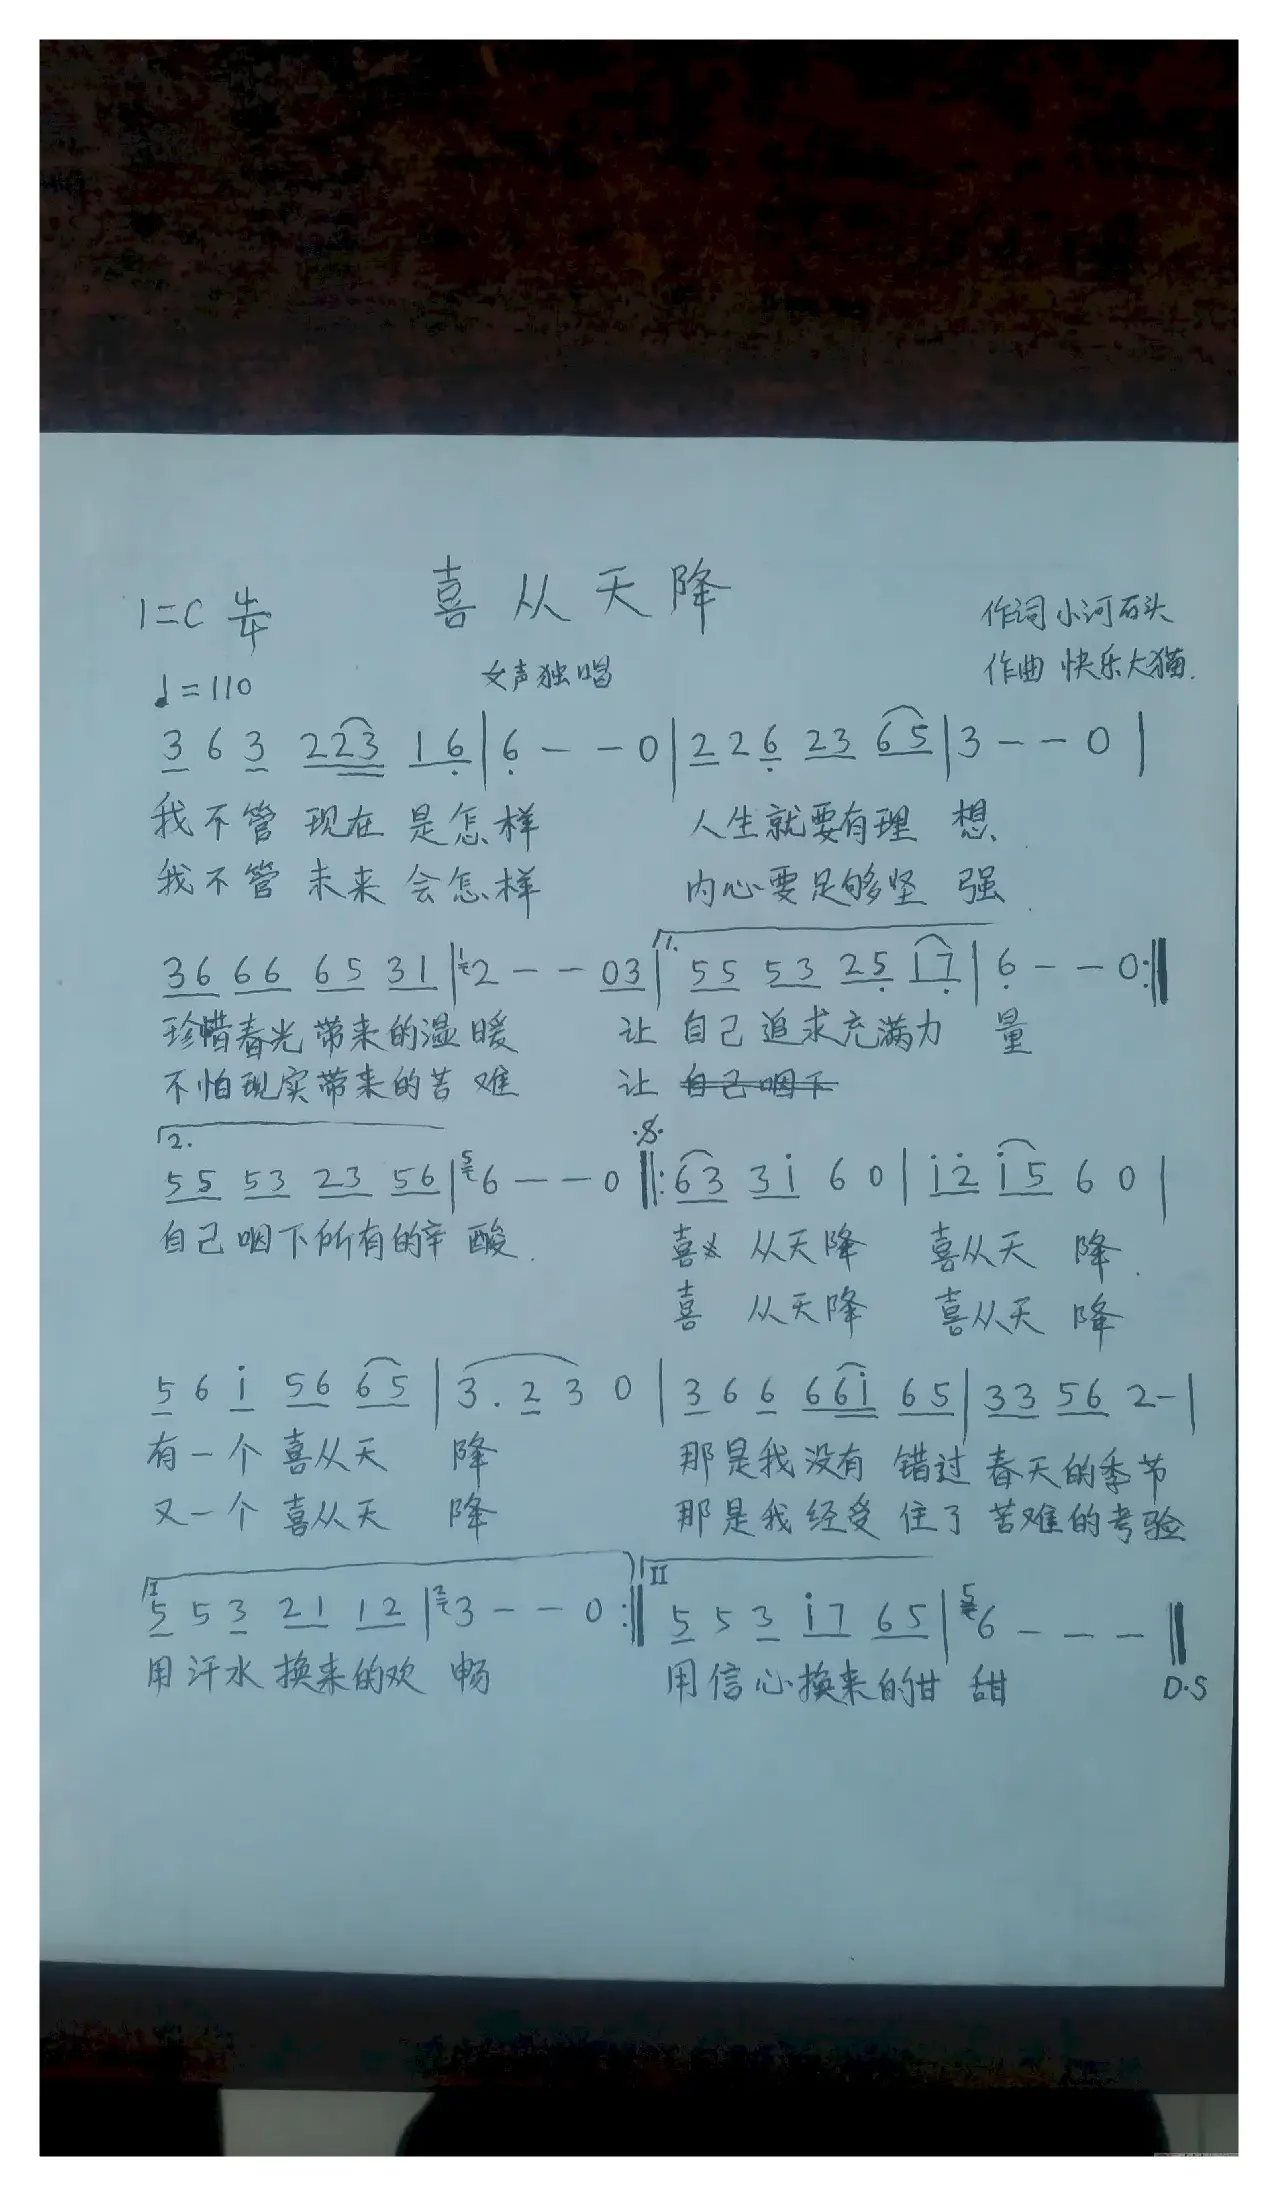 喜从天降
1=C 4/4
作词 小河石头
♩=110
女声独唱
作曲 快乐大猫.
3 6 3 2 2 3 1 6 | 6 - - 0 | 2 2 6 2 3 6 5 | 3 - - 0 |
我不管 现在 是怎样 人生就要有理 想、
我不管 未来 会怎样 内心要足够坚 强.
3 6 6 6 6 5 3 1 | 1 2 - - 0 3 | 1. 5 5 5 3 2 5 1 7 | 6 - - 0 :||
珍惜春光带来的温暖 让 自己追求充满力 量
不怕现实带来的苦难 让 自己咽下
2. 5 5 5 3 2 3 5 6 | 5 6 - - 0 𝄋 ||: 6 3 3 i 6 0 | i 2̇ i 5 6 0 |
自己咽下所有的辛 酸. 喜 从天降 喜从天 降.
喜 从天降 喜从天 降
5 6 i 5 6 6 5 | 3 . 2 3 0 | 3 6 6 6 6 i 6 5 | 3 3 5 6 2 - |
有一个 喜从天 降 那是我没有 错过 春天的季节
又一个 喜从天 降 那是我 经受 住了 苦难的考验
I 5 5 3 2 1 1 2 | 2 3 - - 0 :|| II 5 5 3 i 7 6 5 | 5 6 - - - ||
用汗水 换来的欢 畅 用信心换来的甘 甜 D.S